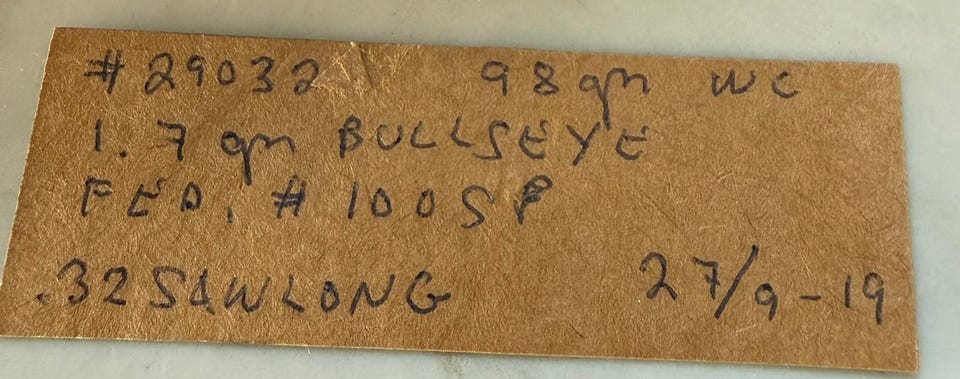 #29032 98gn WC
1.7 gn BULLSEYE
FED. #100SP
.32 S&WLONG 27/9-19